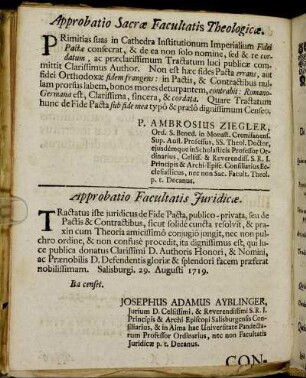 Approbatio Sacræ Facultatis Theologicæ.
PRimitias suas in Cathedra Institutionum Imperialium Fidei
Pacta consecrat, & de ea non solo nomine, sed & re cor-
datum, ac præclarissimum Tractatum luci publicæ com-
mittit Clarissimus Author. Non est hæc fides Pacta errans, aut
fidei Orthodoxæ fidem frangens: in Pactis, & Contractibus nul-
lam prorsus labem, bonos mores deturpantem, contrahit: Romano-
Germana est, Clarissima, sincera, & cordata. Quare Tractatum
hunc de Fide Pacta sub fide mea typô & prælô dignissimum Censeo.
P. AMBROSIUS ZIEGLER,
Ord. S. Bened. in Monast. Cremifanens.
Sup. Aust. Professus, SS. Theol. Doctor,
ejusdémque in Schola stica Professor Or-
dinarius, Celsiss. & Reverendiss. S. R. I.
Principis & Archi-Episc. Consiliarius Ec-
clesiasticus, nec non Sac. Facult. Theol.
p. t. Decanus.
Approbatio Facultatis Juridicæ.
TRactatus iste juridicus de Fide Pacta, publico-privata, seu de
Pactis & Contractibus, sicut solidè cuncta resolvit, & pra-
xin cum Theoria amicissimô conjugiô jungit, nec non pul-
chro ordine, & non confusè procedit, ita dignissimus est, qui lu-
ce publica donatus Clarissimi D. Authoris Honori, & Nomini,
ac Prænobilis D. Defendentis gloriæ & splendori facem præferat
nobilissimam. Salisburgi. 29. Augusti 1719.
Ita censet.
JOSEPHUS ADAMUS AYBLINGER,
Jurium D. Celsissimi, & Reverendissimi S. R. I.
Principis & Archi Episcopi Salisburgensis Con-
siliarius, & in Alma hac Universitate Pandecta-
rum Professor Ordinarius, nec non Facultatis
Juridicæ p. t. Decanus.
CON-